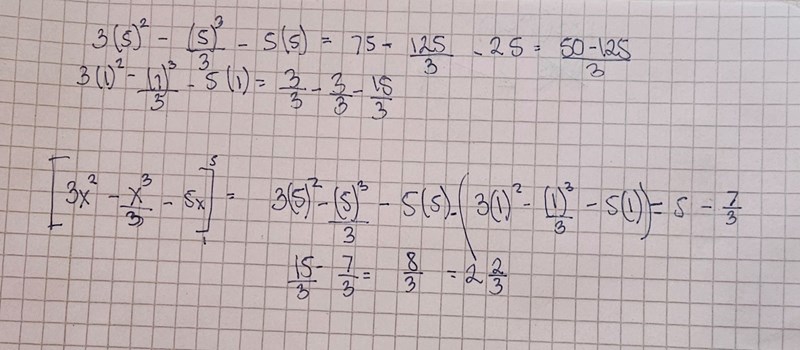 3(5)² - (5)³/3 - 5(5) = 75 - 125/3 - 25 = 50-125/3
3(1)² - (1)³/3 - 5(1) = 3/3 - 3/3 - 15/3
[3x² - x³/3 - 5x]₁⁵ = 3(5)² - (5)³/3 - 5(5) - (3(1)² - (1)³/3 - 5(1)) = 5 - 7/3
15/3 - 7/3 = 8/3 = 2 2/3